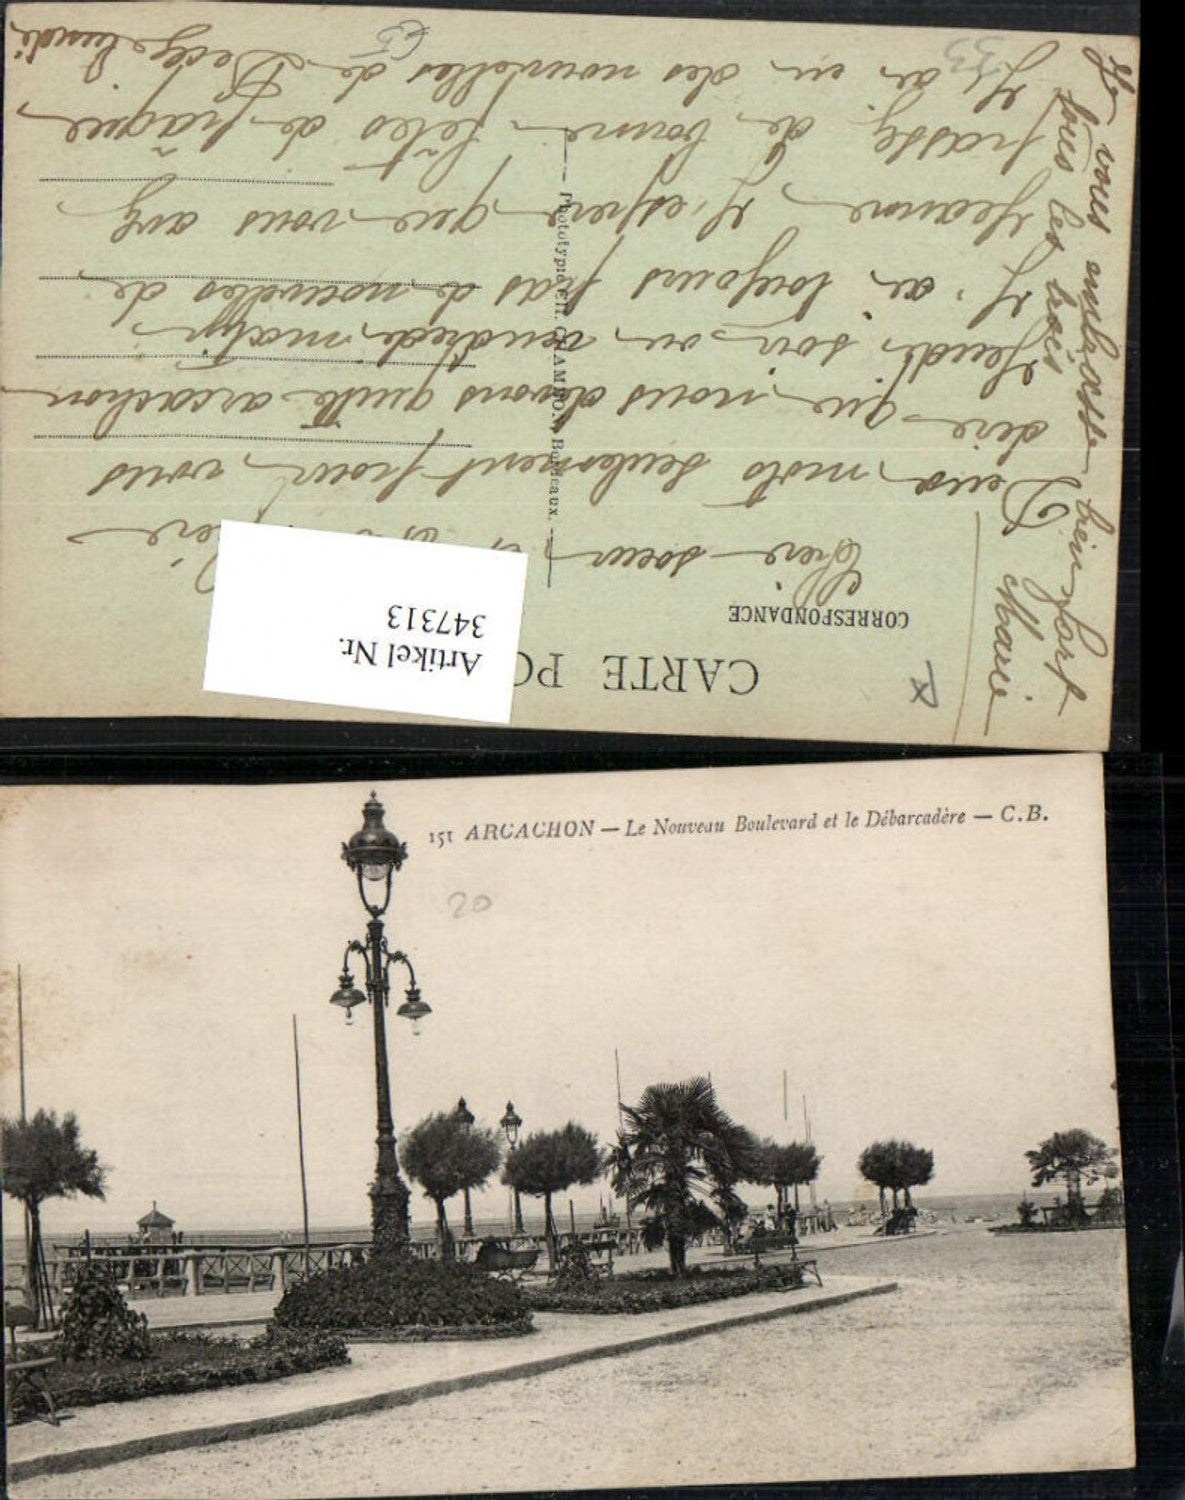 CARTE PO
CORRESPONDANCE
Artikel Nr.
347313
Chère soeur
Deux mots seulement pour vous
dire que nous devons quitte arcachon
Jeudi soir ou vendredi matin
J'ai toujours pas de nouvelles de
Jeanne, J'espère que vous avez
passé de bonne fêtes de pâques
J'ai eu des nouvelles de lundi
Je vous embrasse bien fort
tous les trois
Marie
Phototypie CH. CHAMBON, Bordeaux.
33
151 ARCACHON — Le Nouveau Boulevard et le Débarcadère — C.B.
20